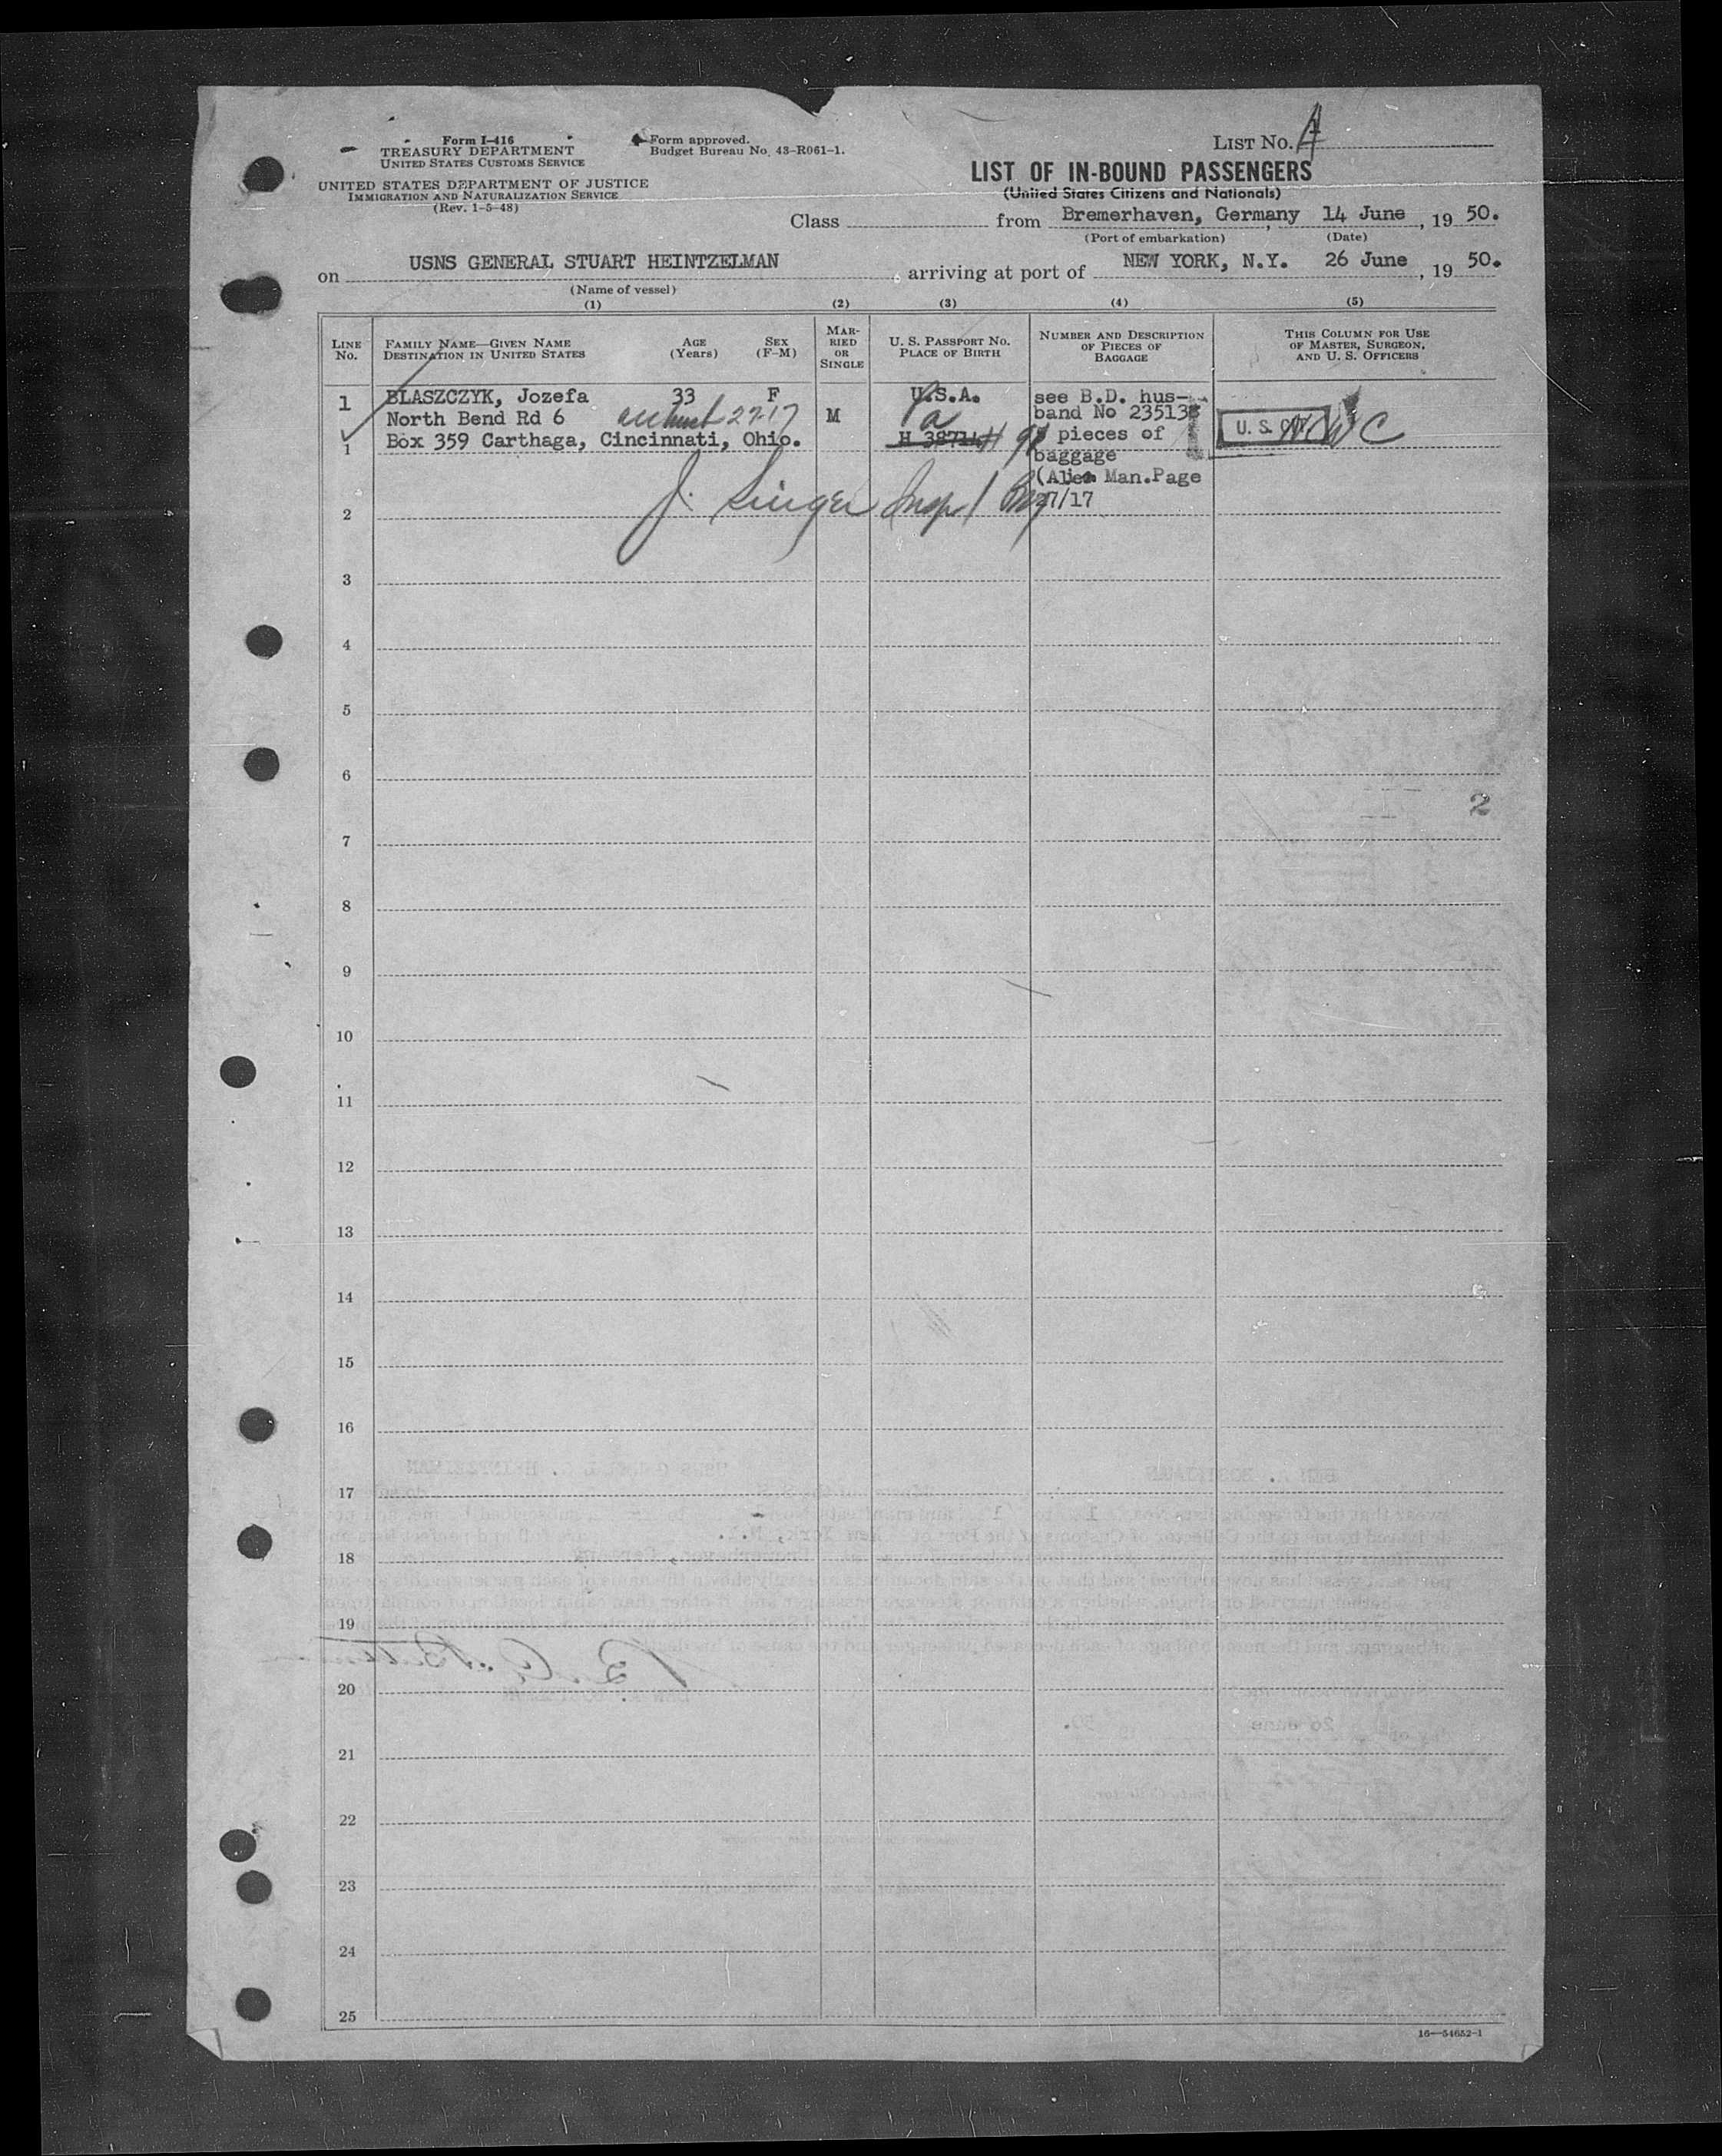 Form I-416
TREASURY DEPARTMENT
UNITED STATES CUSTOMS SERVICE
UNITED STATES DEPARTMENT OF JUSTICE
IMMIGRATION AND NATURALIZATION SERVICE
(Rev. 1-5-48)
Form approved.
Budget Bureau No. 43-R061-1.
LIST No.
LIST OF IN-BOUND PASSENGERS
(United States Citizens and Nationals)
Class from Bremerhaven, Germany, 14 June, 19 50.
(Port of embarkation) (Date)
on USNS GENERAL STUART HEINTZELMAN, arriving at port of NEW YORK, N.Y. 26 June, 19 50.
(Name of vessel)
(1) (2) (3) (4) (5)
LINE No.
FAMILY NAME—GIVEN NAME
DESTINATION IN UNITED STATES
AGE (Years)
SEX (F-M)
MARRIED OR SINGLE
U. S. PASSPORT No.
PLACE OF BIRTH
NUMBER AND DESCRIPTION OF PIECES OF BAGGAGE
THIS COLUMN FOR USE OF MASTER, SURGEON, AND U. S. OFFICERS
1 BLASZCZYK, Jozefa 33 F U.S.A. see B.D. hus-
North Bend Rd 6 27-17 M Pa band No 235138
Box 359 Carthaga, Cincinnati, Ohio. pieces of
U. S. CIT. NCWC
1 baggage
(Alien Man.Page
J. Singer Insp 27/17
2
3
4
5
6
2
7
8
9
10
11
12
13
14
15
16
17
18
19
20
21
22
23
24
25
16—54652-1